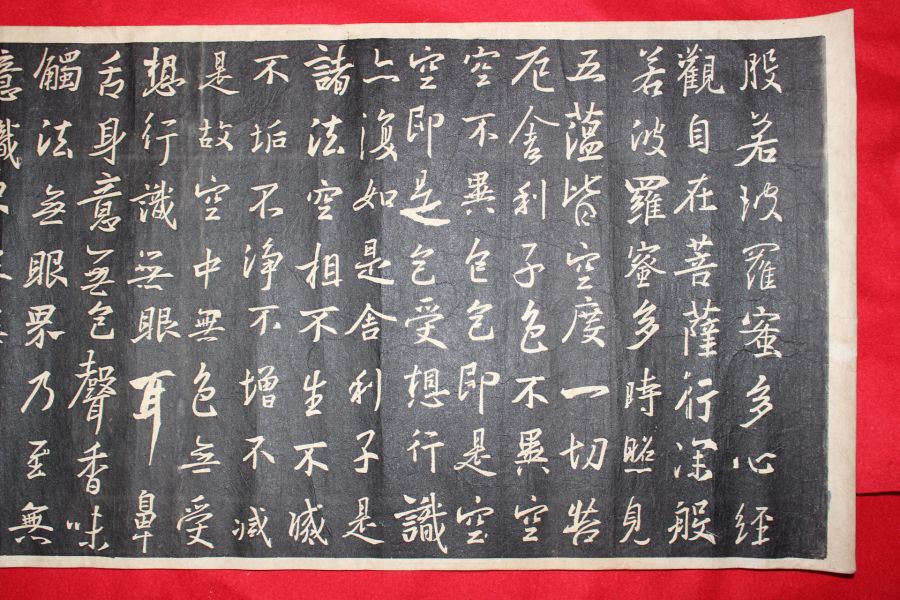 般若波羅蜜多心経
觀自在菩薩行深般
若波羅蜜多時照見
五蘊皆空度一切苦
厄舍利子色不異空
空不異色色即是空
空即是色受想行識
亦復如是舍利子是
諸法空相不生不滅
不垢不淨不增不減
是故空中無色無受
想行識無眼耳鼻
舌身意無色聲香味
觸法無眼界乃至無
意識